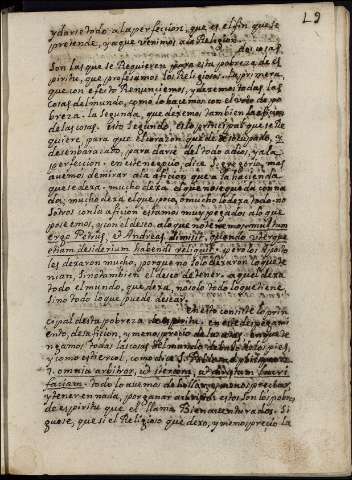 L9
y darse todo a la perfeccion, que es el fin que se
pretende, y a que venimos a la Religion.
dos cosas
son las que se Requieren para esta pobreza de es
piritu, que profesamos los Religiosos. la primera,
que con efeto Renunciemos, y dexemos todas las
cosas del mundo, como lo hacemos con el voto de po
breza. la segunda, que dexemos tambien la aficion
de las cosas. esto segundo, es lo principal que se Re
quiere, para que el coraçon quede
desenbaraçado, para darse del todo a dios, y a la
perfeccion. en este negocio dice S. gregorio, mas
avemos de mirar a la aficion que a la hacienda
que se dexa. mucho dexa el que no se queda con na
da; mucho dexa el que poco, o mucho lo dexa todo. no
sotros con la aficion estamos muy pegados a lo que
poseemos, y con el deseo, a lo que no tenemos multum
ergo Petrus, et Andreas dimisit, quando uterque
etiam desiderium habendi reliquit.
les dexaron mucho, porque no solo dexaron lo que te
nian, sino tambien el deseo de tener. aquel dexa
todo el mundo, que dexa, no solo todo lo que tiene
sino todo lo que puede desear.
En esto consiste lo prin
cipal desta pobreza de espiritu, en este despegami
ento, desaficion, y menosprecio
nejamos todas las cosas del mundo debaxo de los pies,
y como estiercol, como dice S. Pablo
omnia arbitror, ut stercora, ut Christum lucri
faciam. todo lo avemos de
y tener en nada, por ganar a christo. estos son los pobres
de espiritu que el llama Bienaventurados. Si
guese, que si el Religioso que dexo, y menosprecio la